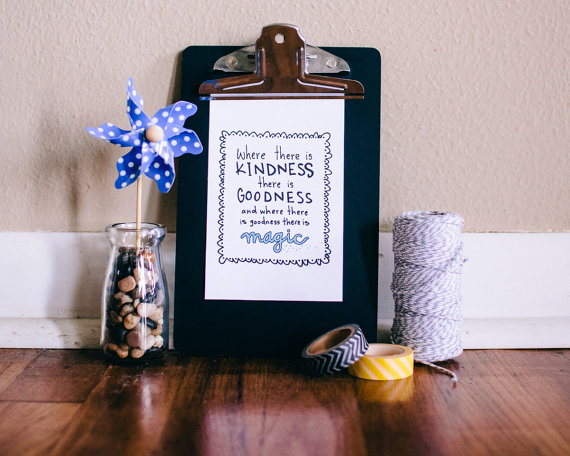 Where there is
KINDNESS
there is
GOODNESS
and where there
is goodness there is
magic